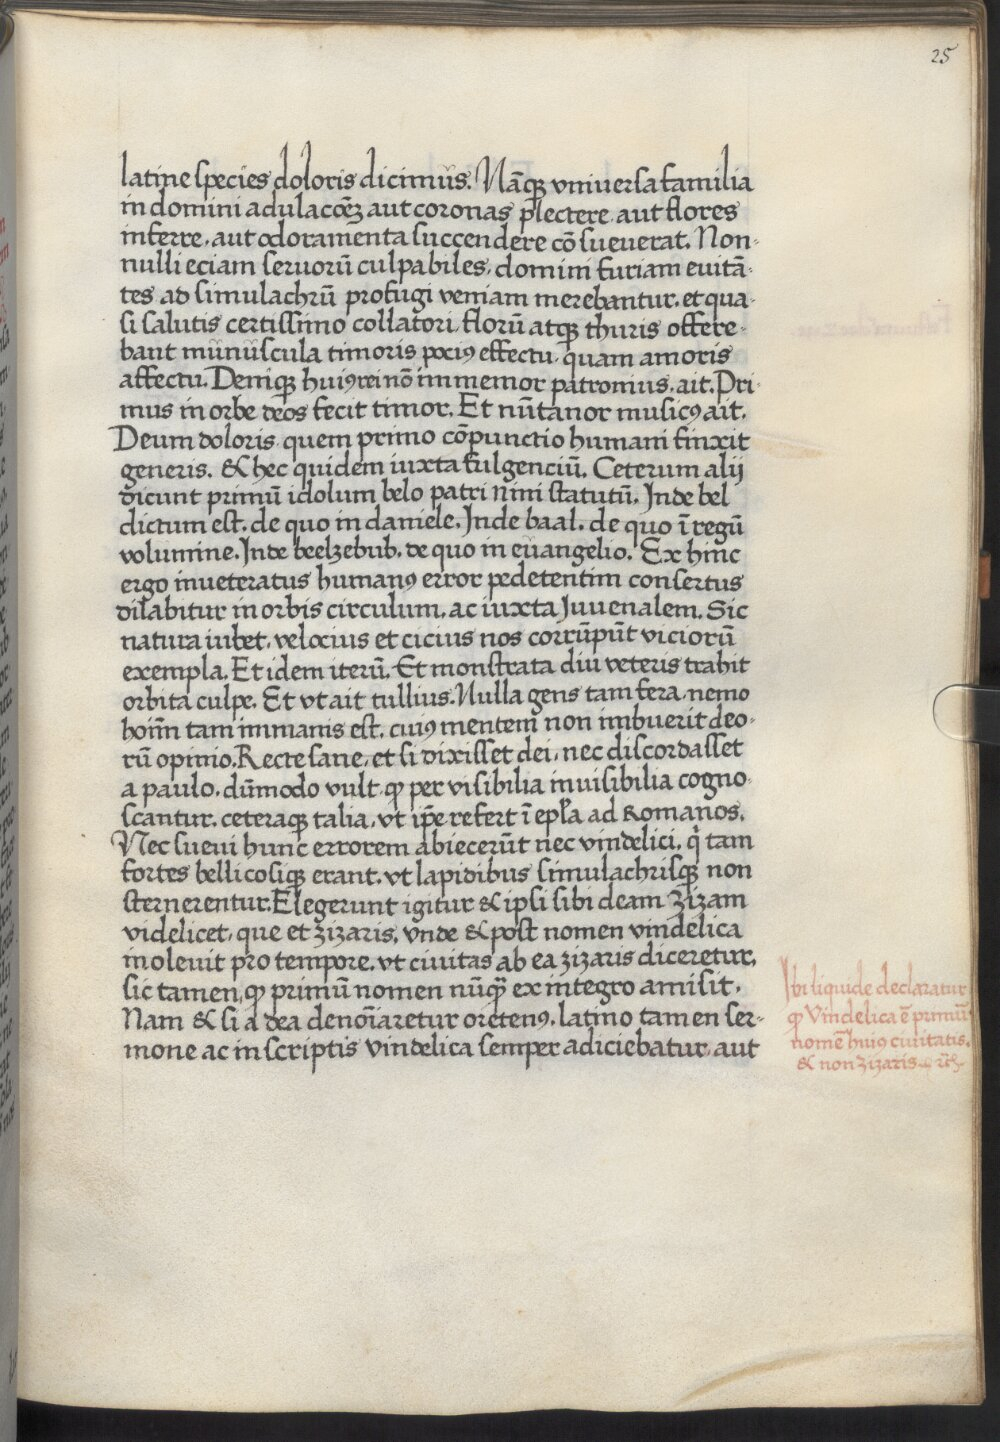 25
latine species doloris dicimus. Nāqꝫ vniuersa familia
in domini adulacōeꝫ aut coronas plectere, aut flores
inferre, aut odoramenta succendere cōsueuerat. Non-
nulli eciam seruorū culpabiles, domini furiam euitā-
tes ad simulachrū profugi veniam merebantur, et qua-
si salutis certissimo collatori, florū atqꝫ thuris offere-
bant munuscula timoris pociꝰ effectu, quam amoris
affectu. Deniqꝫ huiꝰ rei nō immemor patronius, ait. Pri-
mus in orbe deos fecit timor. Et nūtanor musicꝰ ait.
Deum doloris quem primo cōpunctio humani finxit
generis. & hec quidem iuxta fulgenciū. Ceterum alij
dicunt primū idolum belo patri nini statutū. Inde bel
dictum est, de quo in daniele. Inde baal, de quo ī regū
volumine. Inde beelzebub, de quo in euangelio. Ex hinc
ergo inueteratus humanꝰ error pedetentim consertus
dilabitur in orbis circulum, ac iuxta Juuenalem. Sic
natura iubet, velocius et cicius nos corrūpūt viciorū
exempla. Et idem iterū. Et monstrata diu veteris trahit
orbita culpe. Et vt ait tullius. Nulla gens tam fera, nemo
hoīm tam immanis est, cuiꝰ mentem non imbuerit deo-
rū opinio. Recte sane, et si dixisset dei, nec discordasset
a paulo, dūmodo vult ꝙ per visibilia inuisibilia cogno-
scantur, ceteraqꝫ talia, vt ip̄e refert ī ep̄la ad Romanos.
Nec sueui hunc errorem abiecerūt nec vindelici, qi tam
fortes bellicosiqꝫ erant, vt lapidibus simulachrisqꝫ non
sternerentur. Elegerunt igitur & ipsi sibi deam Zizam
videlicet, que et zizaris, vnde & post nomen vindelica
inoleuit pro tempore, vt ciuitas ab ea zizaris diceretur,
sic tamen, ꝙ primū nomen nūqꝫ ex integro amisit.
Nam & si a dea denoīaretur oretenꝰ, latino tamen ser-
mone ac in scriptis vindelica semper adiciebatur, aut
Ibi liquide declaratur
ꝙ Vindelica ē primū
nomē huiꝰ ciuitatis,
& non zizaris